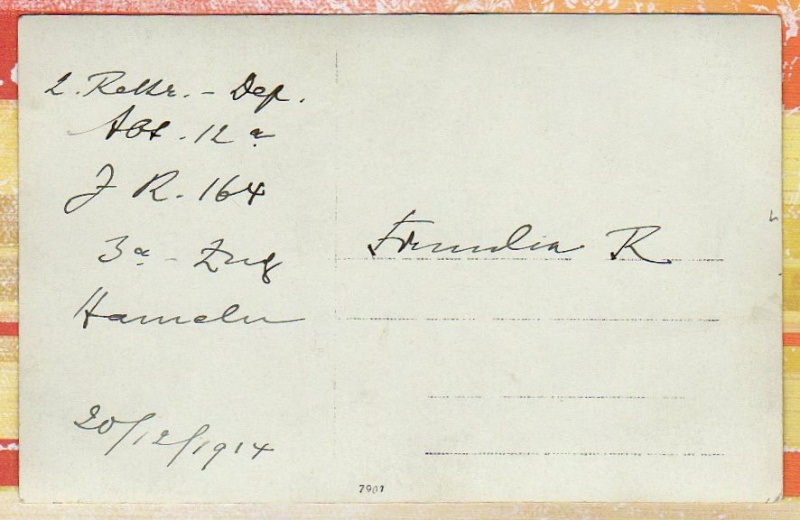 2. Rekr. - Dep.
Abt. 12 a
J R. 164
3a - Zug
Hameln
20/12/1914
Familia R.
7901